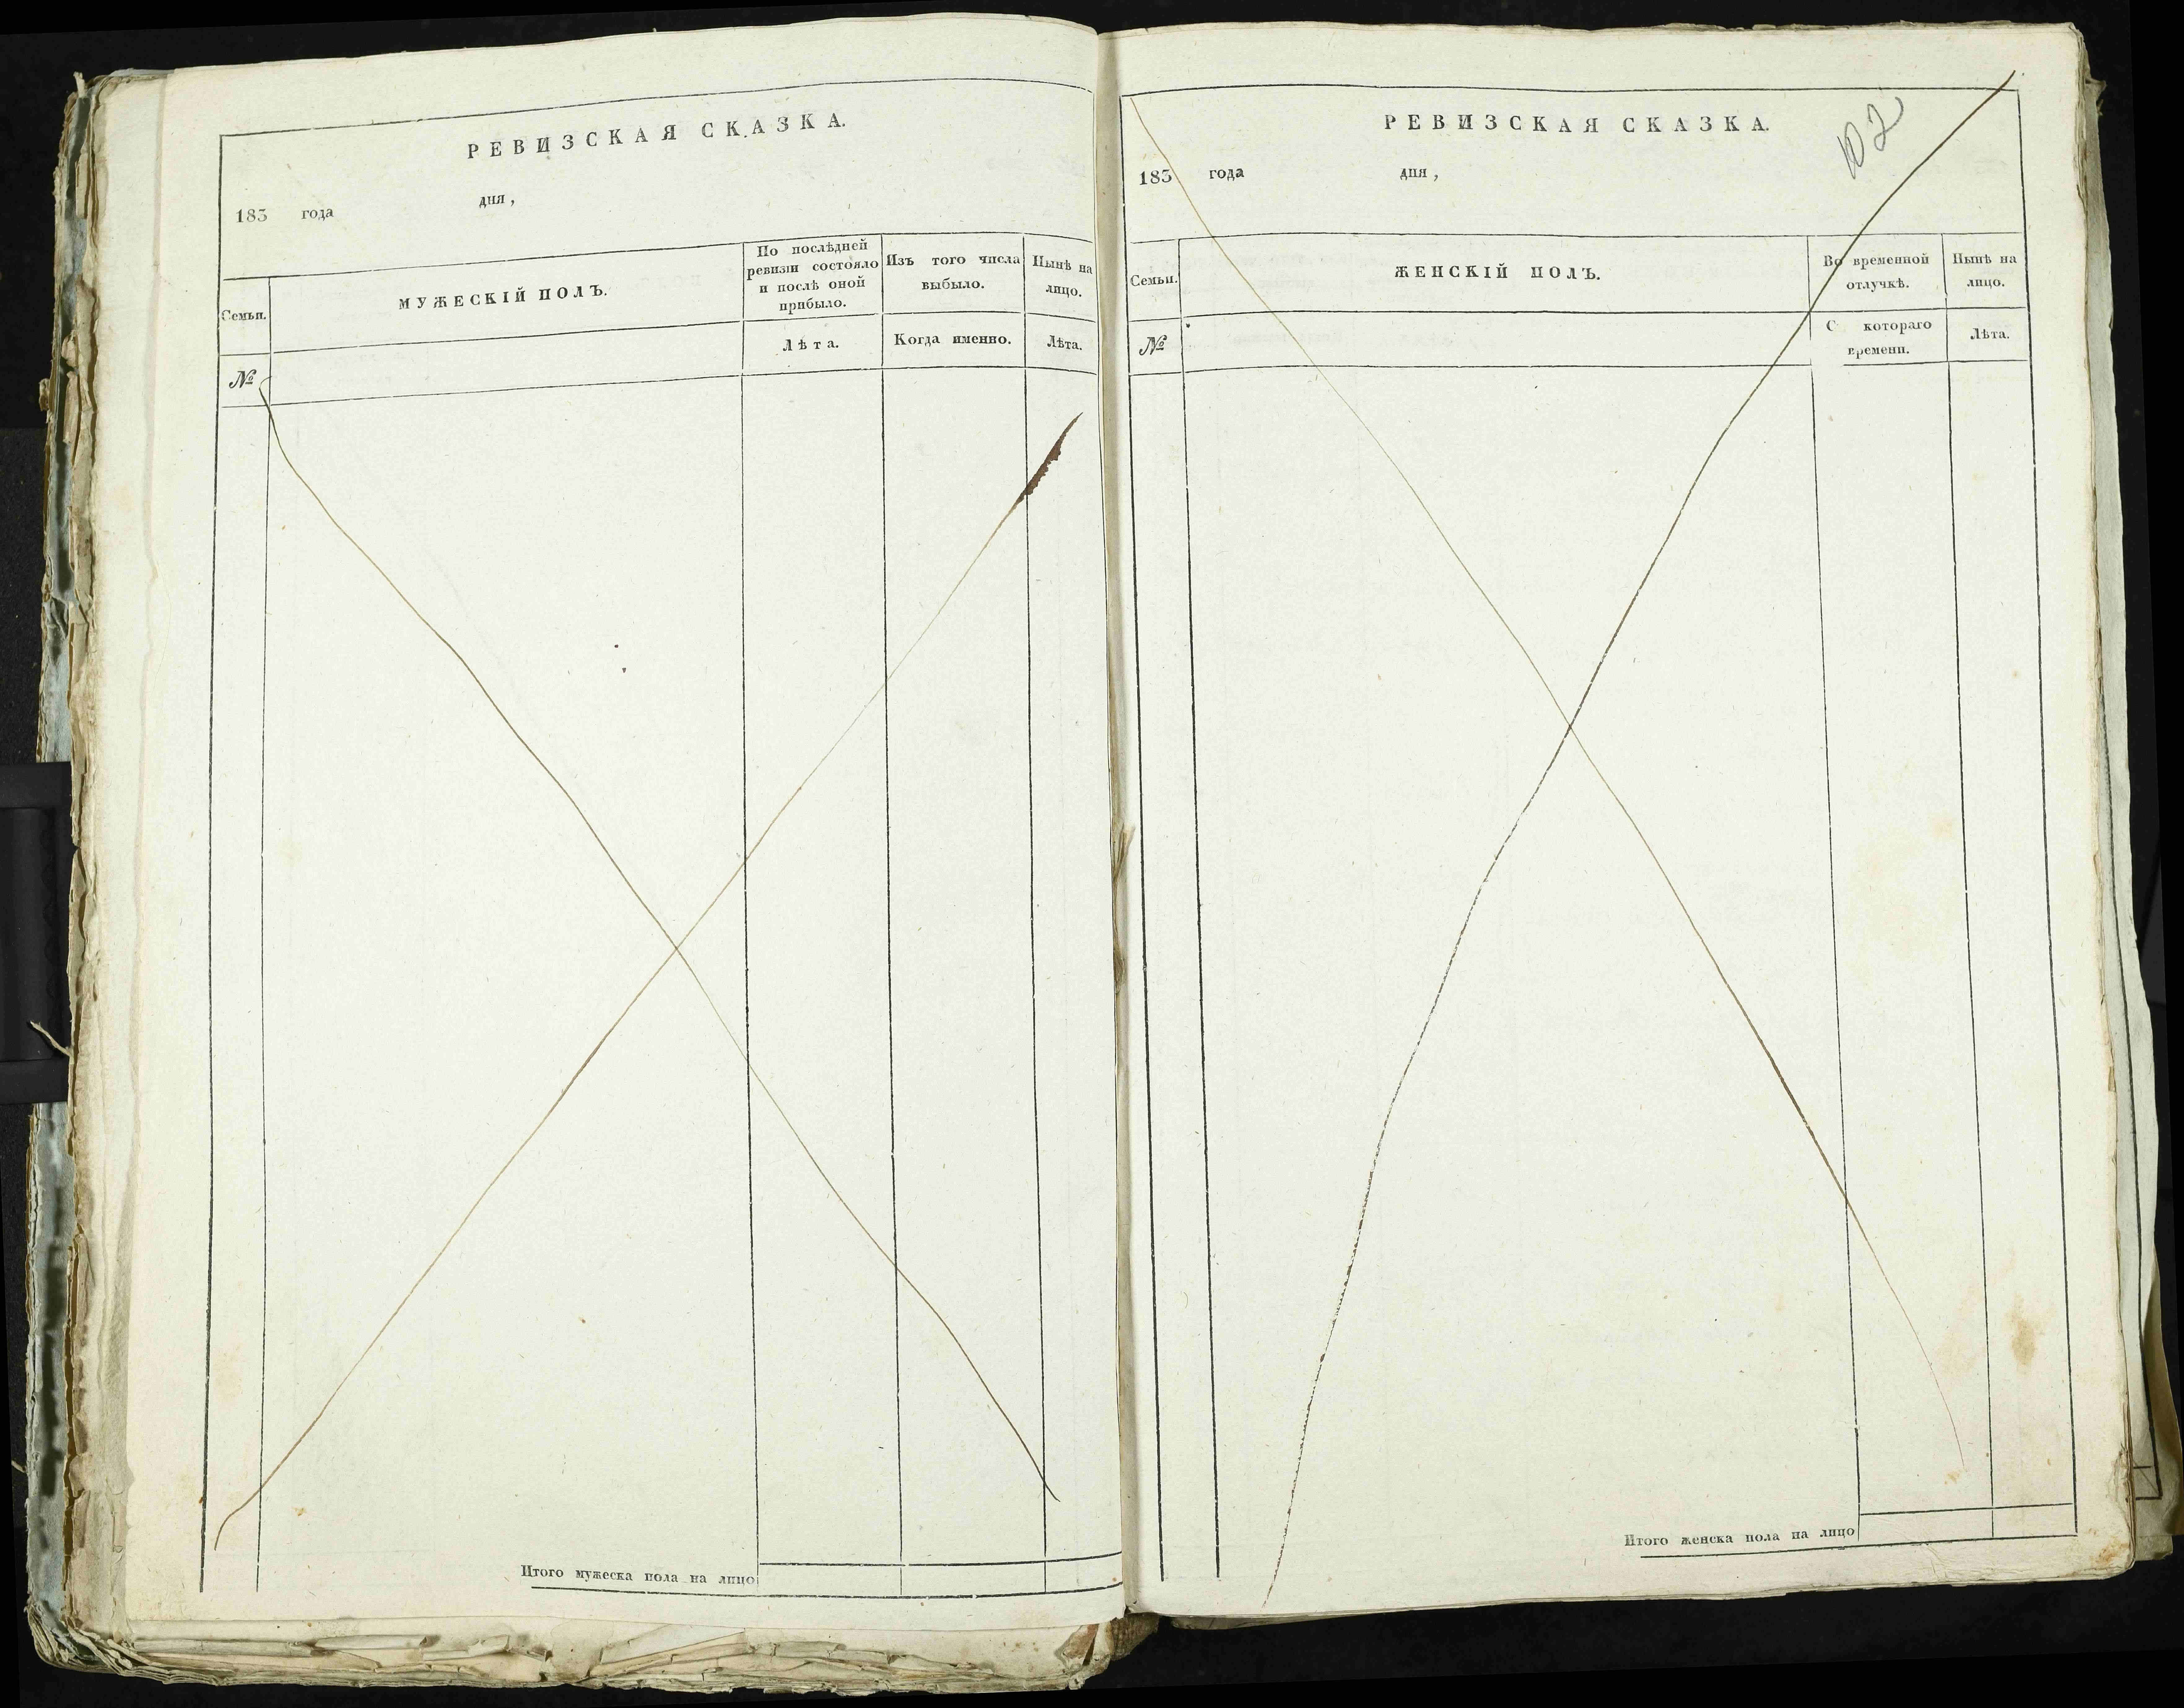 РЕВИЗСКАЯ СКАЗКА.
183 года дня,
Семьи.
МУЖЕСКІЙ ПОЛЪ.
По послѣдней
ревизіи состояло
и послѣ оной
прибыло.
Изъ того числа
выбыло.
Нынѣ на
лицо.
№
Лѣта.
Когда именно.
Лѣта.
Итого мужеска пола на лицо
102
РЕВИЗСКАЯ СКАЗКА.
183 года дня,
Семьи.
ЖЕНСКІЙ ПОЛЪ.
Во временной
отлучкѣ.
Нынѣ на
лицо.
№
С котораго
времени.
Лѣта.
Итого женска пола на лицо